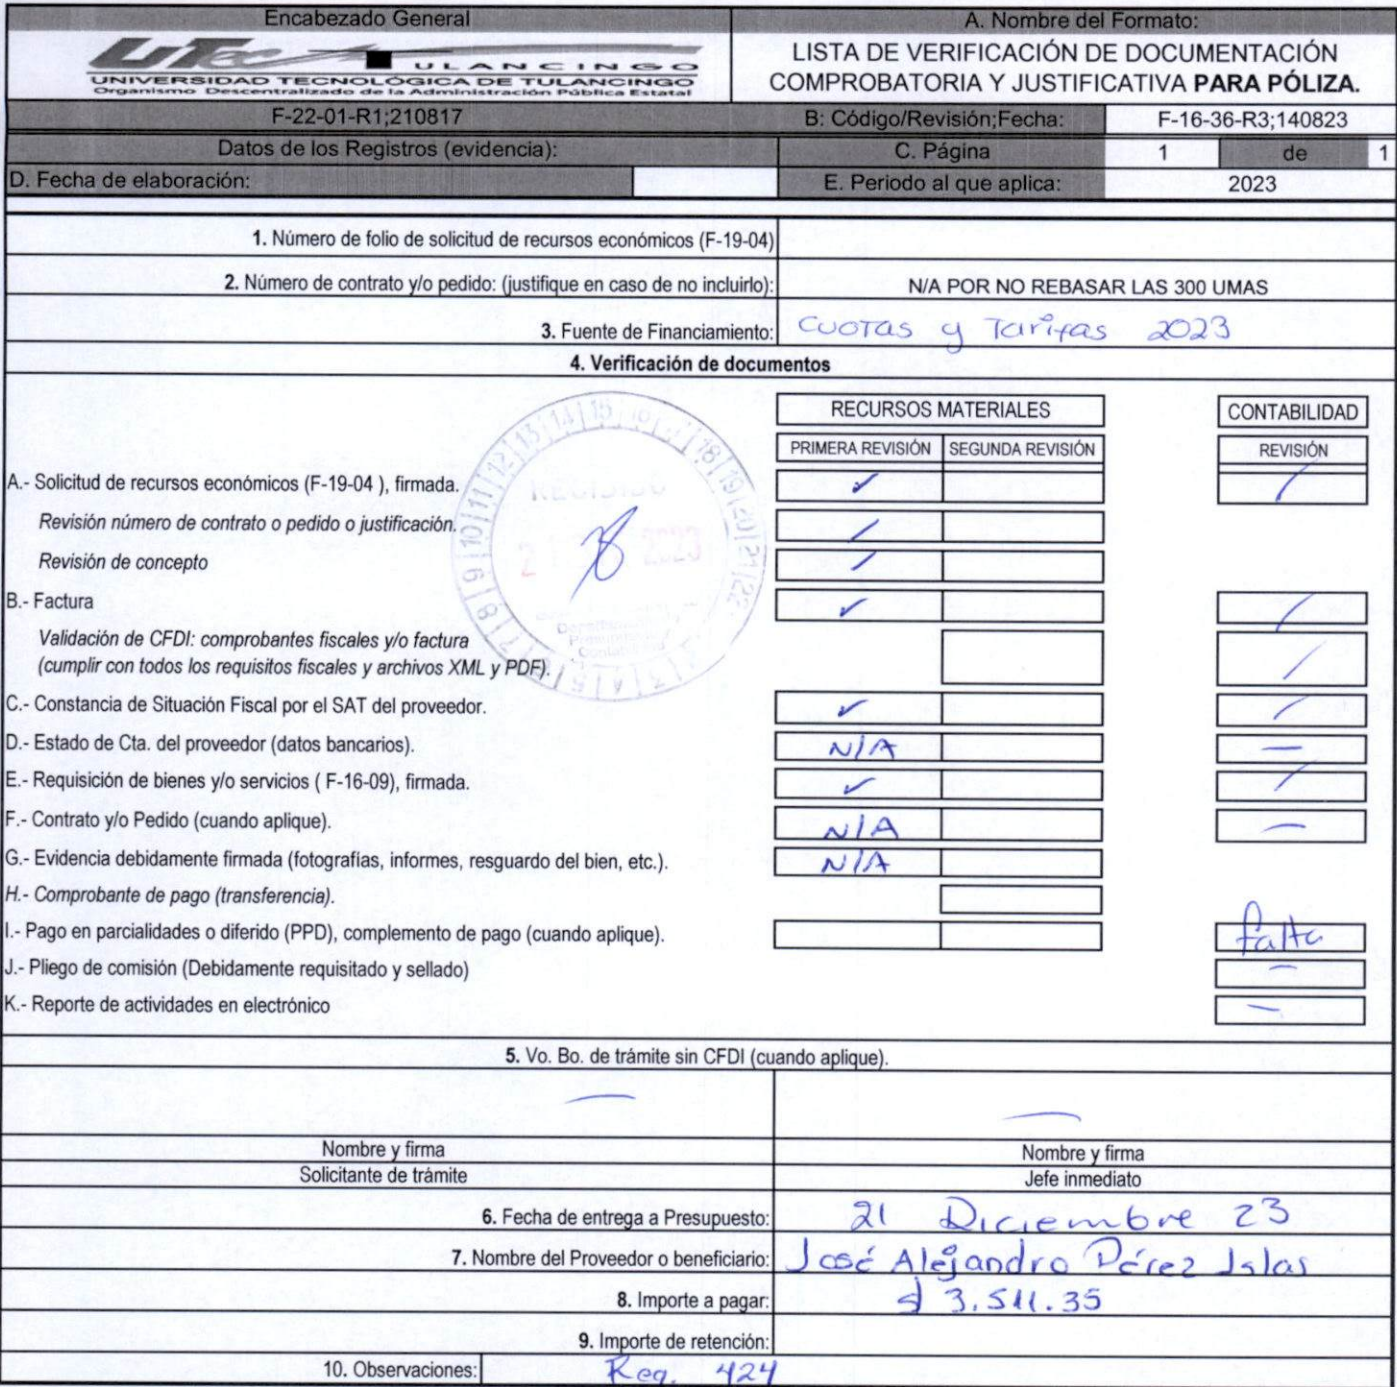 Encabezado General
A. Nombre del Formato:
UTec TULANCINGO
UNIVERSIDAD TECNOLÓGICA DE TULANCINGO
Organismo Descentralizado de la Administración Pública Estatal
LISTA DE VERIFICACIÓN DE DOCUMENTACIÓN
COMPROBATORIA Y JUSTIFICATIVA PARA PÓLIZA.
F-22-01-R1;210817
B: Código/Revisión;Fecha:
F-16-36-R3;140823
Datos de los Registros (evidencia):
C. Página
1 de 1
D. Fecha de elaboración:
E. Periodo al que aplica:
2023
1. Número de folio de solicitud de recursos económicos (F-19-04)
2. Número de contrato y/o pedido: (justifique en caso de no incluirlo):
N/A POR NO REBASAR LAS 300 UMAS
3. Fuente de Financiamiento:
Cuotas y Tarifas 2023
4. Verificación de documentos
RECURSOS MATERIALES
CONTABILIDAD
PRIMERA REVISIÓN
SEGUNDA REVISIÓN
REVISIÓN
A.- Solicitud de recursos económicos (F-19-04 ), firmada. ✓ /
Revisión número de contrato o pedido o justificación. /
Revisión de concepto /
RECIBIDO
21 2023
B.- Factura ✓ /
Validación de CFDI: comprobantes fiscales y/o factura
(cumplir con todos los requisitos fiscales y archivos XML y PDF). /
C.- Constancia de Situación Fiscal por el SAT del proveedor. ✓ /
D.- Estado de Cta. del proveedor (datos bancarios). N/A —
E.- Requisición de bienes y/o servicios ( F-16-09), firmada. ✓ /
F.- Contrato y/o Pedido (cuando aplique). N/A —
G.- Evidencia debidamente firmada (fotografías, informes, resguardo del bien, etc.). N/A
H.- Comprobante de pago (transferencia).
I.- Pago en parcialidades o diferido (PPD), complemento de pago (cuando aplique). falta
J.- Pliego de comisión (Debidamente requisitado y sellado) —
K.- Reporte de actividades en electrónico —
5. Vo. Bo. de trámite sin CFDI (cuando aplique).
— —
Nombre y firma
Nombre y firma
Solicitante de trámite
Jefe inmediato
6. Fecha de entrega a Presupuesto:
21 Diciembre 23
7. Nombre del Proveedor o beneficiario:
José Alejandro Pérez Islas
8. Importe a pagar:
$ 3,511.35
9. Importe de retención:
10. Observaciones:
Req. 424